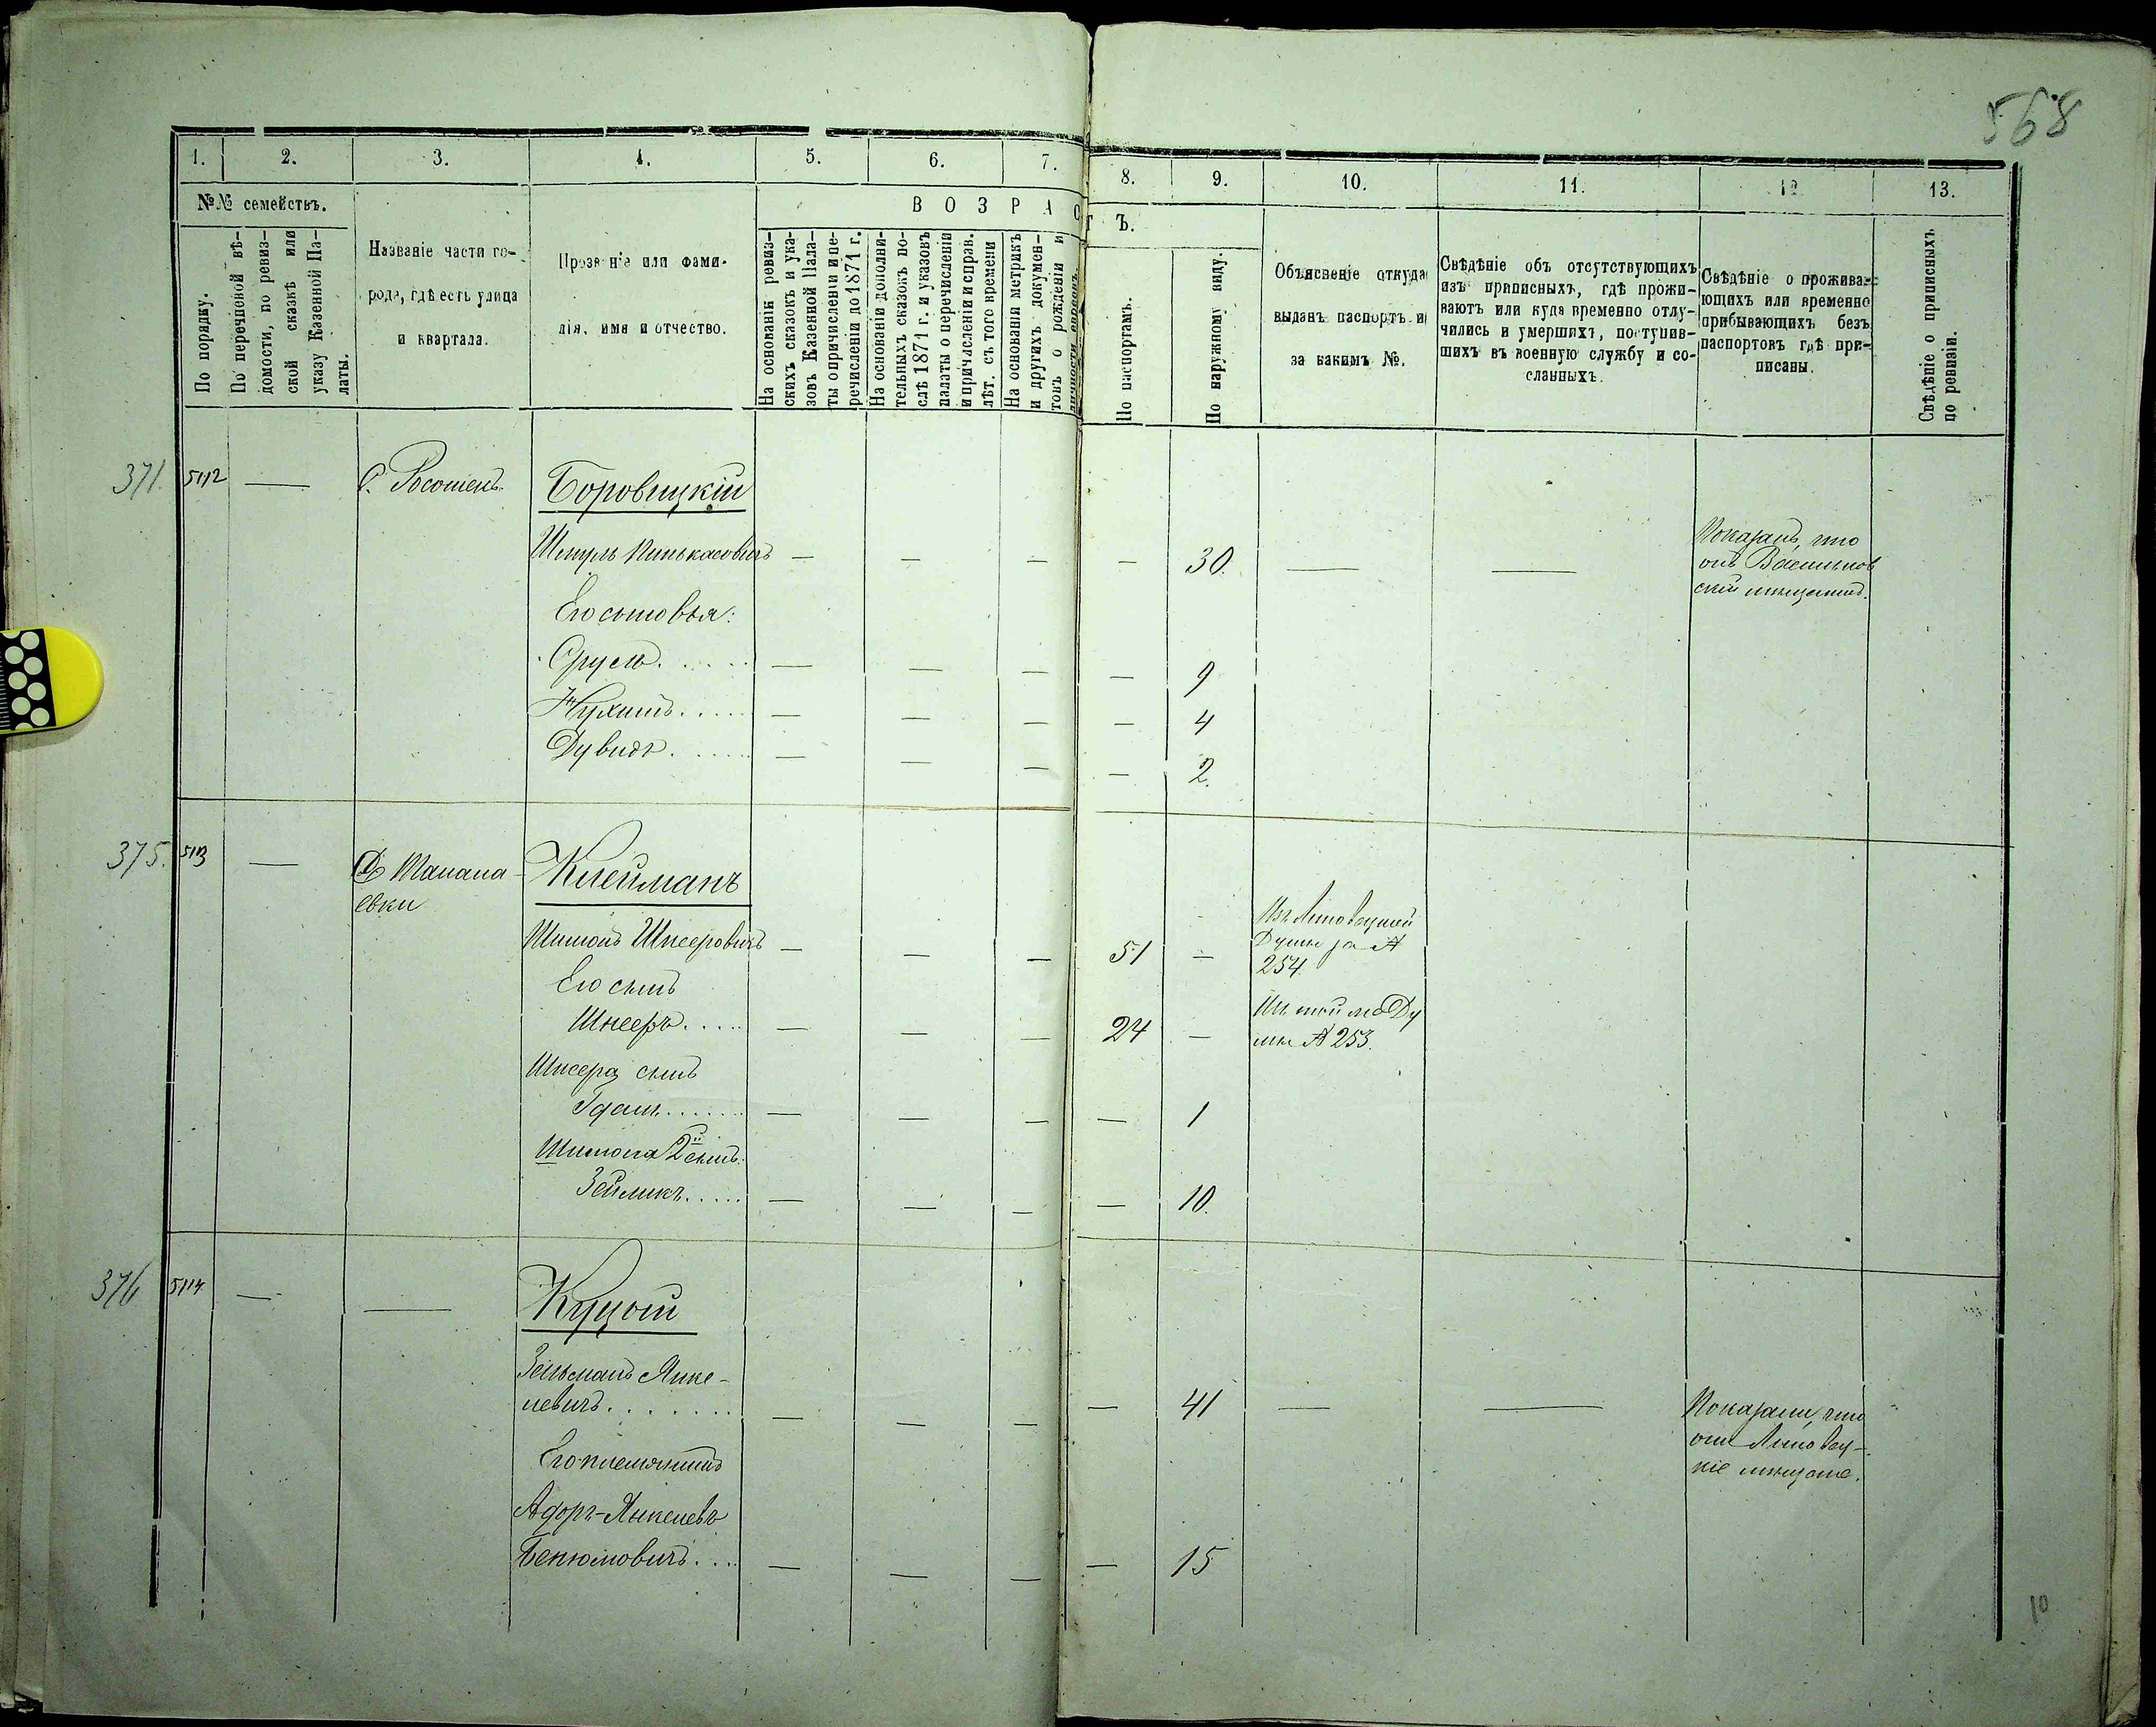 568
1. 2. 3. 4. 5. 6. 7. 8. 9. 10. 11. 12. 13.
№№ семействъ.
По порядку.
По перечневой вѣ-
домости, по ревиз-
ской сказкѣ или
указу Казенной Па-
латы.
Названіе части го-
рода, гдѣ есть улица
и квартала.
Прозваніе или фами-
лія, имя и отчество.
ВОЗРАСТЪ.
На основаніи ревиз-
скихъ сказокъ и ука-
зовъ Казенной Пала-
ты о причисленіи и пе-
речисленіи до 1871 г.
На основаніи дополни-
тельныхъ сказокъ по-
слѣ 1871 г. и указовъ
палаты о перечисленіи
и причисленіи и справ.
лѣт. съ того времени
На основаніи метрикъ
и другихъ докумен-
товъ о рожденіи и
По паспортамъ.
По наружному виду.
Объясненіе откуда
выданъ паспортъ и
за какимъ №.
Свѣдѣніе объ отсутствующихъ
изъ приписныхъ, гдѣ прожи-
ваютъ или куда временно отлу-
чились и умершихъ, поступив-
шихъ въ военную службу и со-
сланныхъ.
Свѣдѣніе о прожива-
ющихъ или временно
прибывающихъ безъ
паспортовъ гдѣ при-
писаны.
Свѣдѣніе о приписныхъ
по ревизіи.
371. 5112 — С. Росошекъ Боровицкій
Шмуль Пинькасовичъ — — — — 30. — — Показалъ, что
онъ Васильков
скій мѣщанинъ.
Его сыновья:
Сруль..... — — — — 9
Нухимъ..... — — — — 4
Дувидъ..... — — — — 2.
375. 5113 —
евки
Клейманъ
Шимонъ Шнееровичъ — — — 51 — Изъ Липовецкой
Думы за №
254.
Его сынъ
Шнееръ..... — — — 24 — Изъ той же Ду
мы № 253.
Шнеера сынъ
— — — — 1
Шимона 2й сынъ
Зейликъ..... — — — — 10.
376 5114 — — Куцой
Зельманъ Янке-
левичъ....... — — — — 41 — — Показали, что
они Липовец-
кіе мѣщане.
Его племянникъ
Янкелевъ
Бенюмовичъ... — — — — 15
10